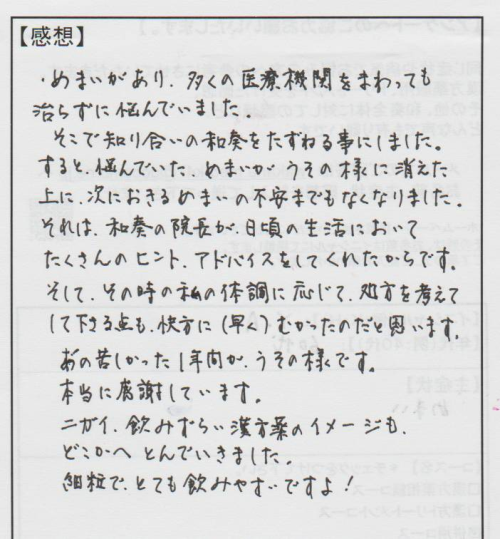 【感想】
・めまいがあり、多くの医療機関をまわっても
治らずに悩んでいました。
そこで知り合いの和奏をたずねる事にしました。
すると、悩んでいた、めまいが うその様に消えた
上に、次におきるめまいの不安までもなくなりました。
それは、和奏の院長が、日頃の生活において
たくさんのヒント、アドバイスをしてくれたからです。
そして、その時の私の体調に応じて、処方を考えて
して下さる点も、快方に(早く)むかったのだと思います。
あの苦しかった1年間が、うその様です。
本当に感謝しています。
ニガイ、飲みずらい漢方薬のイメージも、
どこかへ とんでいきました。
細粒で、とても飲みやすいですよ!